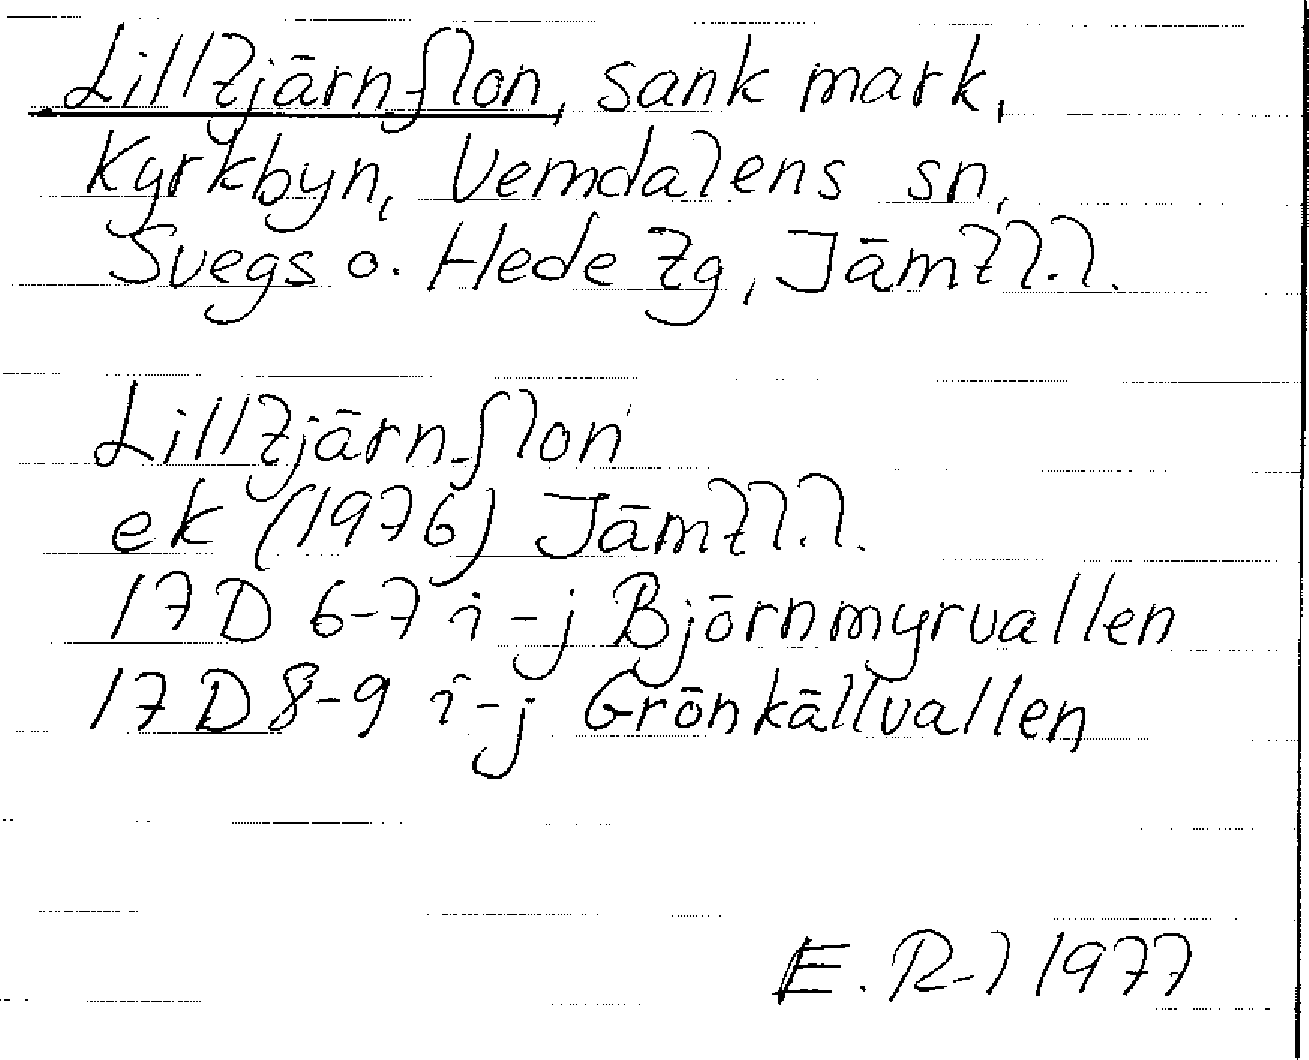 Lilltjärnflon, sank mark,
Kyrkbyn, Vemdalens sn,
Svegs o. Hede tg, Jämtl.l.
Lilltjärnflon
ek (1976) Jämtl.l.
17D 6-7 i-j Björnmyrvallen
17D 8-9 i-j Grönkällvallen
E. R-l 1977